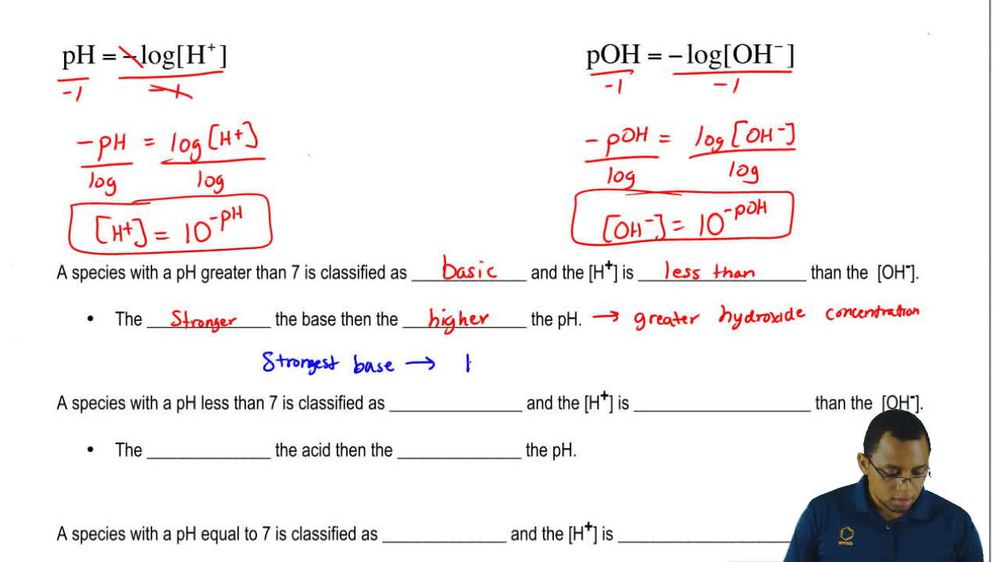 pH = -log[H⁺]
pOH = -log[OH⁻]
-1 -1
-1 -1
-pH = log[H+]
-pOH = log[OH-]
log log
log log
[H+] = 10^-pH
[OH-] = 10^-pOH
A species with a pH greater than 7 is classified as basic and the [H⁺] is less than than the [OH⁻].
• The Stronger the base then the higher the pH. → greater hydroxide concentration
Strongest base →
A species with a pH less than 7 is classified as ______ and the [H⁺] is ______ than the [OH⁻].
• The ______ the acid then the ______ the pH.
A species with a pH equal to 7 is classified as ______ and the [H⁺] is ______